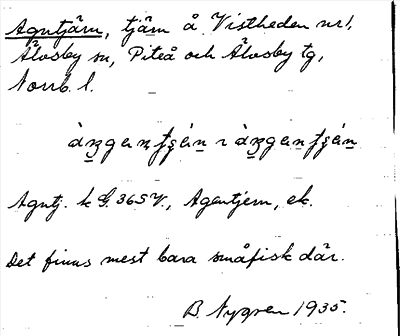 Agntjärn, tjärn å Vistheden nr 1,
Älvsby sn, Piteå och Älvsby tg,
Norrb. l.
Agntj. k G. 365 V., Agentjern, ek.
Det finns mest bara småfisk där.
B. Nygren 1935.